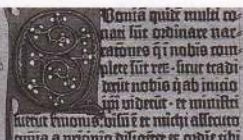 Quoniā quidē multi co-
nati sūt ordinare nar-
rationes q̄ i nobis com-
plete sūt reʒ. sicut tradi-
derūt nobis q̄ ab inicio
ipi viderūt · et ministri
fuerūt sermonis · visū ē et michi assecuto
omnia a principio diligēter ex ordine tibi